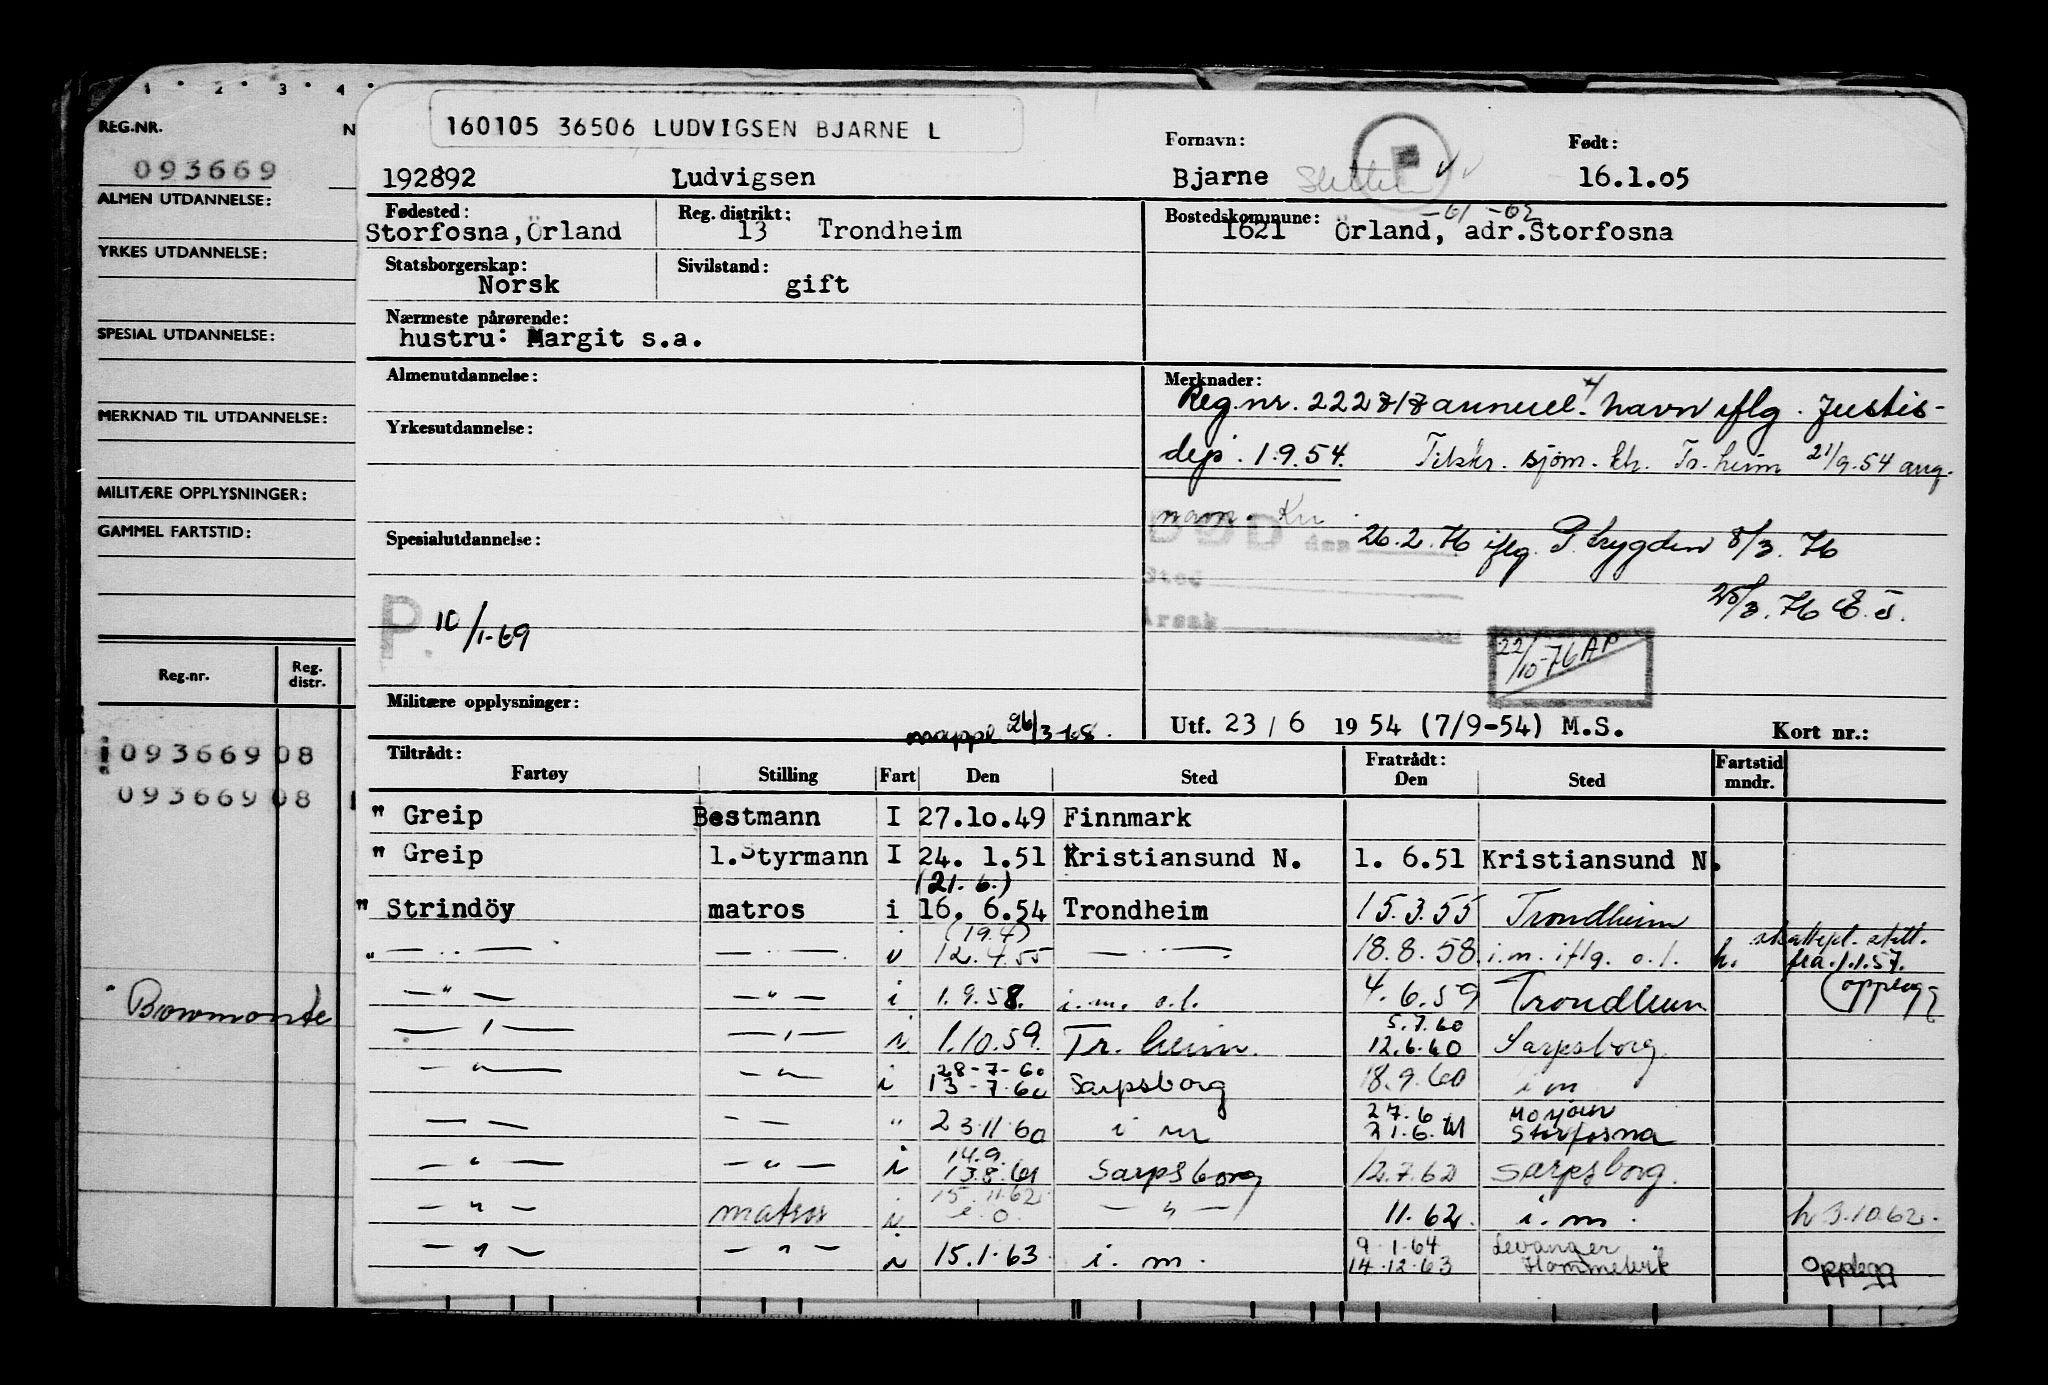 1 2 3 4
REG.NR.
N
093669
ALMEN UTDANNELSE:
YRKES UTDANNELSE:
SPESIAL UTDANNELSE:
MERKNAD TIL UTDANNELSE:
MILITÆRE OPPLYSNINGER:
GAMMEL FARTSTID:
Reg.nr. Reg. distr.
093669 08
093669 08
160105 36506 LUDVIGSEN BJARNE L
Fornavn: Født:
192892 Ludvigsen Bjarne F 16.1.05
Fødested: Reg. distrikt: Bostedskommune: -61 -62
Storfosna, Örland 13 Trondheim 1621 Örland, adr.Storfosna
Statsborgerskap: Sivilstand:
Norsk gift
Nærmeste pårørende:
hustru: Margit s.a.
Almenutdannelse:
Yrkesutdannelse:
Spesialutdannelse:
P. 10/1-69
Militære opplysninger:
mappe 26/3-68.
Merknader:
Reg.nr. 222717 annuel. navn iflg. Justis-
dep. 1.9.54. Tilskr. sjøm. kt. Tr.heim 21/9.54 ang.
navn.
DØD den 26.2.76 iflg. P. trygden 8/3.76
Sted
Årsak
25/3.76 E.J.
22/10-76 AP
Utf. 23/6 1954 (7/9-54) M.S. Kort nr.:
Tiltrådt: Fratrådt: Fartstid
Fartøy Stilling Fart Den Sted Den Sted mndr.
" Greip Bestmann I 27.10.49 Finnmark
" Greip 1.Styrmann I 24. 1.51 Kristiansund N. 1. 6.51 Kristiansund N.
(21.6.)
" Strindöy matros i 16. 6.54 Trondheim 15.3.55 Trondheim
(19.4)
" — " — — " — i 12.4.55 — " — 18.8.58. i.m. iflg. o.l. h. skattepl. stilt. fra 1.1.57.
— " — — " — i 1.9.58. i.m. o.l. 4.6.59 Trondheim (opplegg
5.7.60
— " — — " — i 1.10.59. Tr. heim. 12.6.60 Sarpsborg
28-7-60
— " — — " — i 13-7-60 Sarpsborg 18.9.60 i m
27.6 Mosjøen
— — — — " 23.11.60 i m 21.6.61 Storfosna
14.9.
— " — — " — i 13.8.61 Sarpsborg 12.7.62 Sarpsborg.
15.11.62
— " — matros i — " — 11.62. i.m. h 3.10.62.
9.1.64 Levanger
— " — — " — i 15.1.63 i. m. 14.12.63 Hommelvik opplegg